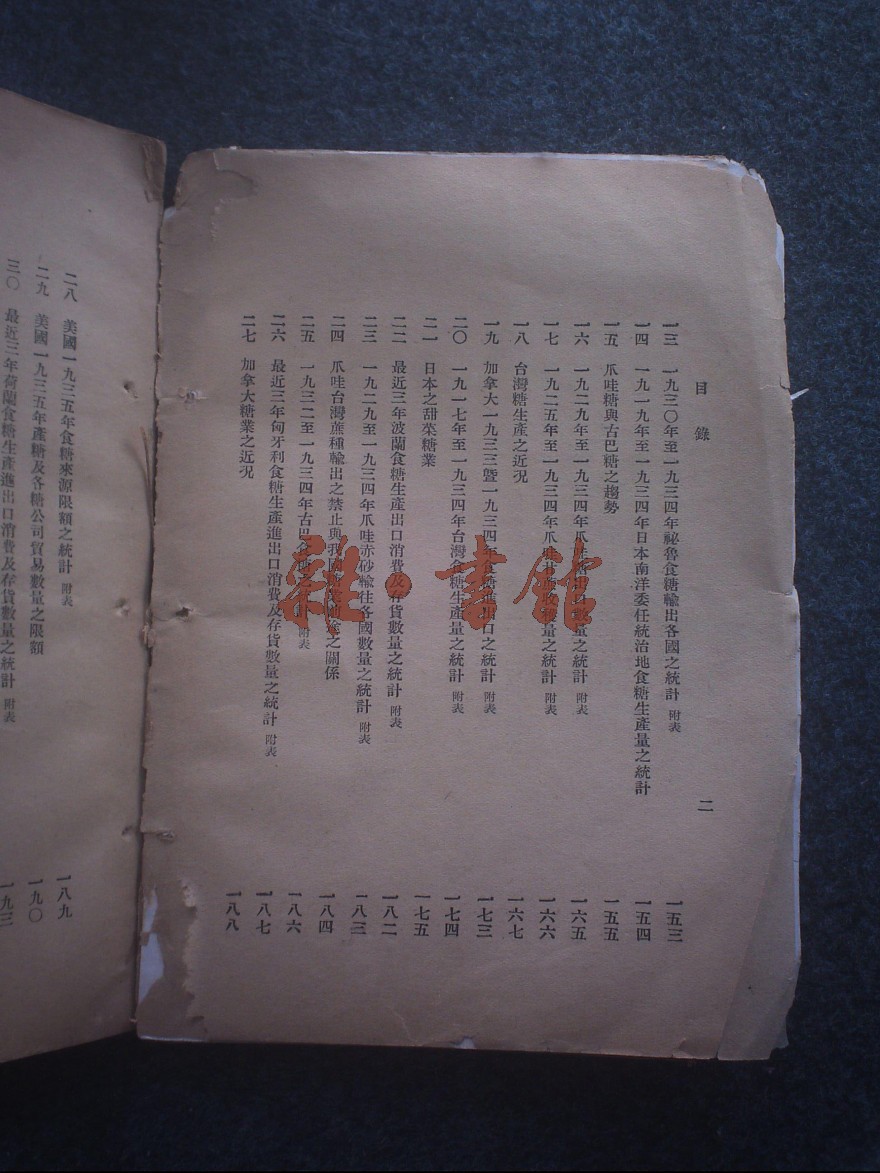 目錄
二
一三 一九三〇年至一九三四年祕魯食糖輸出各國之統計 附表 一五三
一四 一九一九年至一九三四年日本南洋委任統治地食糖生產量之統計 一五四
一五 爪哇糖與古巴糖之趨勢 一五五
一六 一九二九年至一九三四年爪哇糖出口數量之統計 附表 一六五
一七 一九二五年至一九三四年爪哇收量之統計 附表 一六六
一八 台灣糖生產之近況 一六七
一九 加拿大一九三三暨一九三四年食糖進出口之統計 附表 一七三
二〇 一九一七年至一九三四年台灣食糖生產量之統計 附表 一七四
二一 日本之甜菜糖業 一七五
二二 最近三年波蘭食糖生產出口消費及存貨數量之統計 附表 一八二
二三 一九二九至一九三四年爪哇赤砂輸往各國數量之統計 附表 一八三
二四 爪哇台灣蔗種輸出之禁止與我國之關係 一八四
二五 一九三二至一九三四年古巴 附表 一八六
二六 最近三年匈牙利食糖生產進出口消費及存貨數量之統計 附表 一八七
二七 加拿大糖業之近況 一八八
二八 美國一九三五年食糖來源限額之統計 附表 一八九
二九 美國一九三五年產糖及各糖公司貿易數量之限額 一九〇
三〇 最近三年荷蘭食糖生產進出口消費及存貨數量之統計 附表 一九三
書館